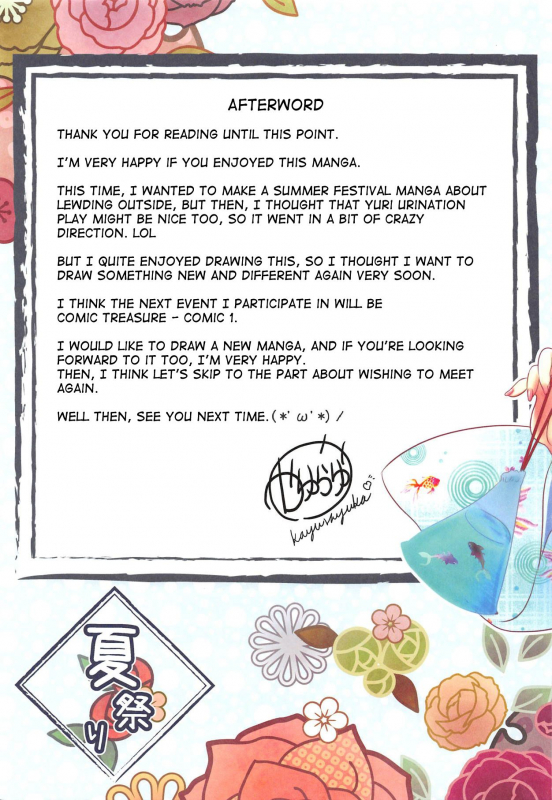 AFTERWORD
THANK YOU FOR READING UNTIL THIS POINT.
I'M VERY HAPPY IF YOU ENJOYED THIS MANGA.
THIS TIME, I WANTED TO MAKE A SUMMER FESTIVAL MANGA ABOUT
LEWDING OUTSIDE, BUT THEN, I THOUGHT THAT YURI URINATION
PLAY MIGHT BE NICE TOO, SO IT WENT IN A BIT OF CRAZY
DIRECTION. LOL
BUT I QUITE ENJOYED DRAWING THIS, SO I THOUGHT I WANT TO
DRAW SOMETHING NEW AND DIFFERENT AGAIN VERY SOON.
I THINK THE NEXT EVENT I PARTICIPATE IN WILL BE
COMIC TREASURE - COMIC 1.
I WOULD LIKE TO DRAW A NEW MANGA, AND IF YOU'RE LOOKING
FORWARD TO IT TOO, I'M VERY HAPPY.
THEN, I THINK LET'S SKIP TO THE PART ABOUT WISHING TO MEET
AGAIN.
WELL THEN, SEE YOU NEXT TIME.(*'ω'*)/
kayurayuka
夏祭り